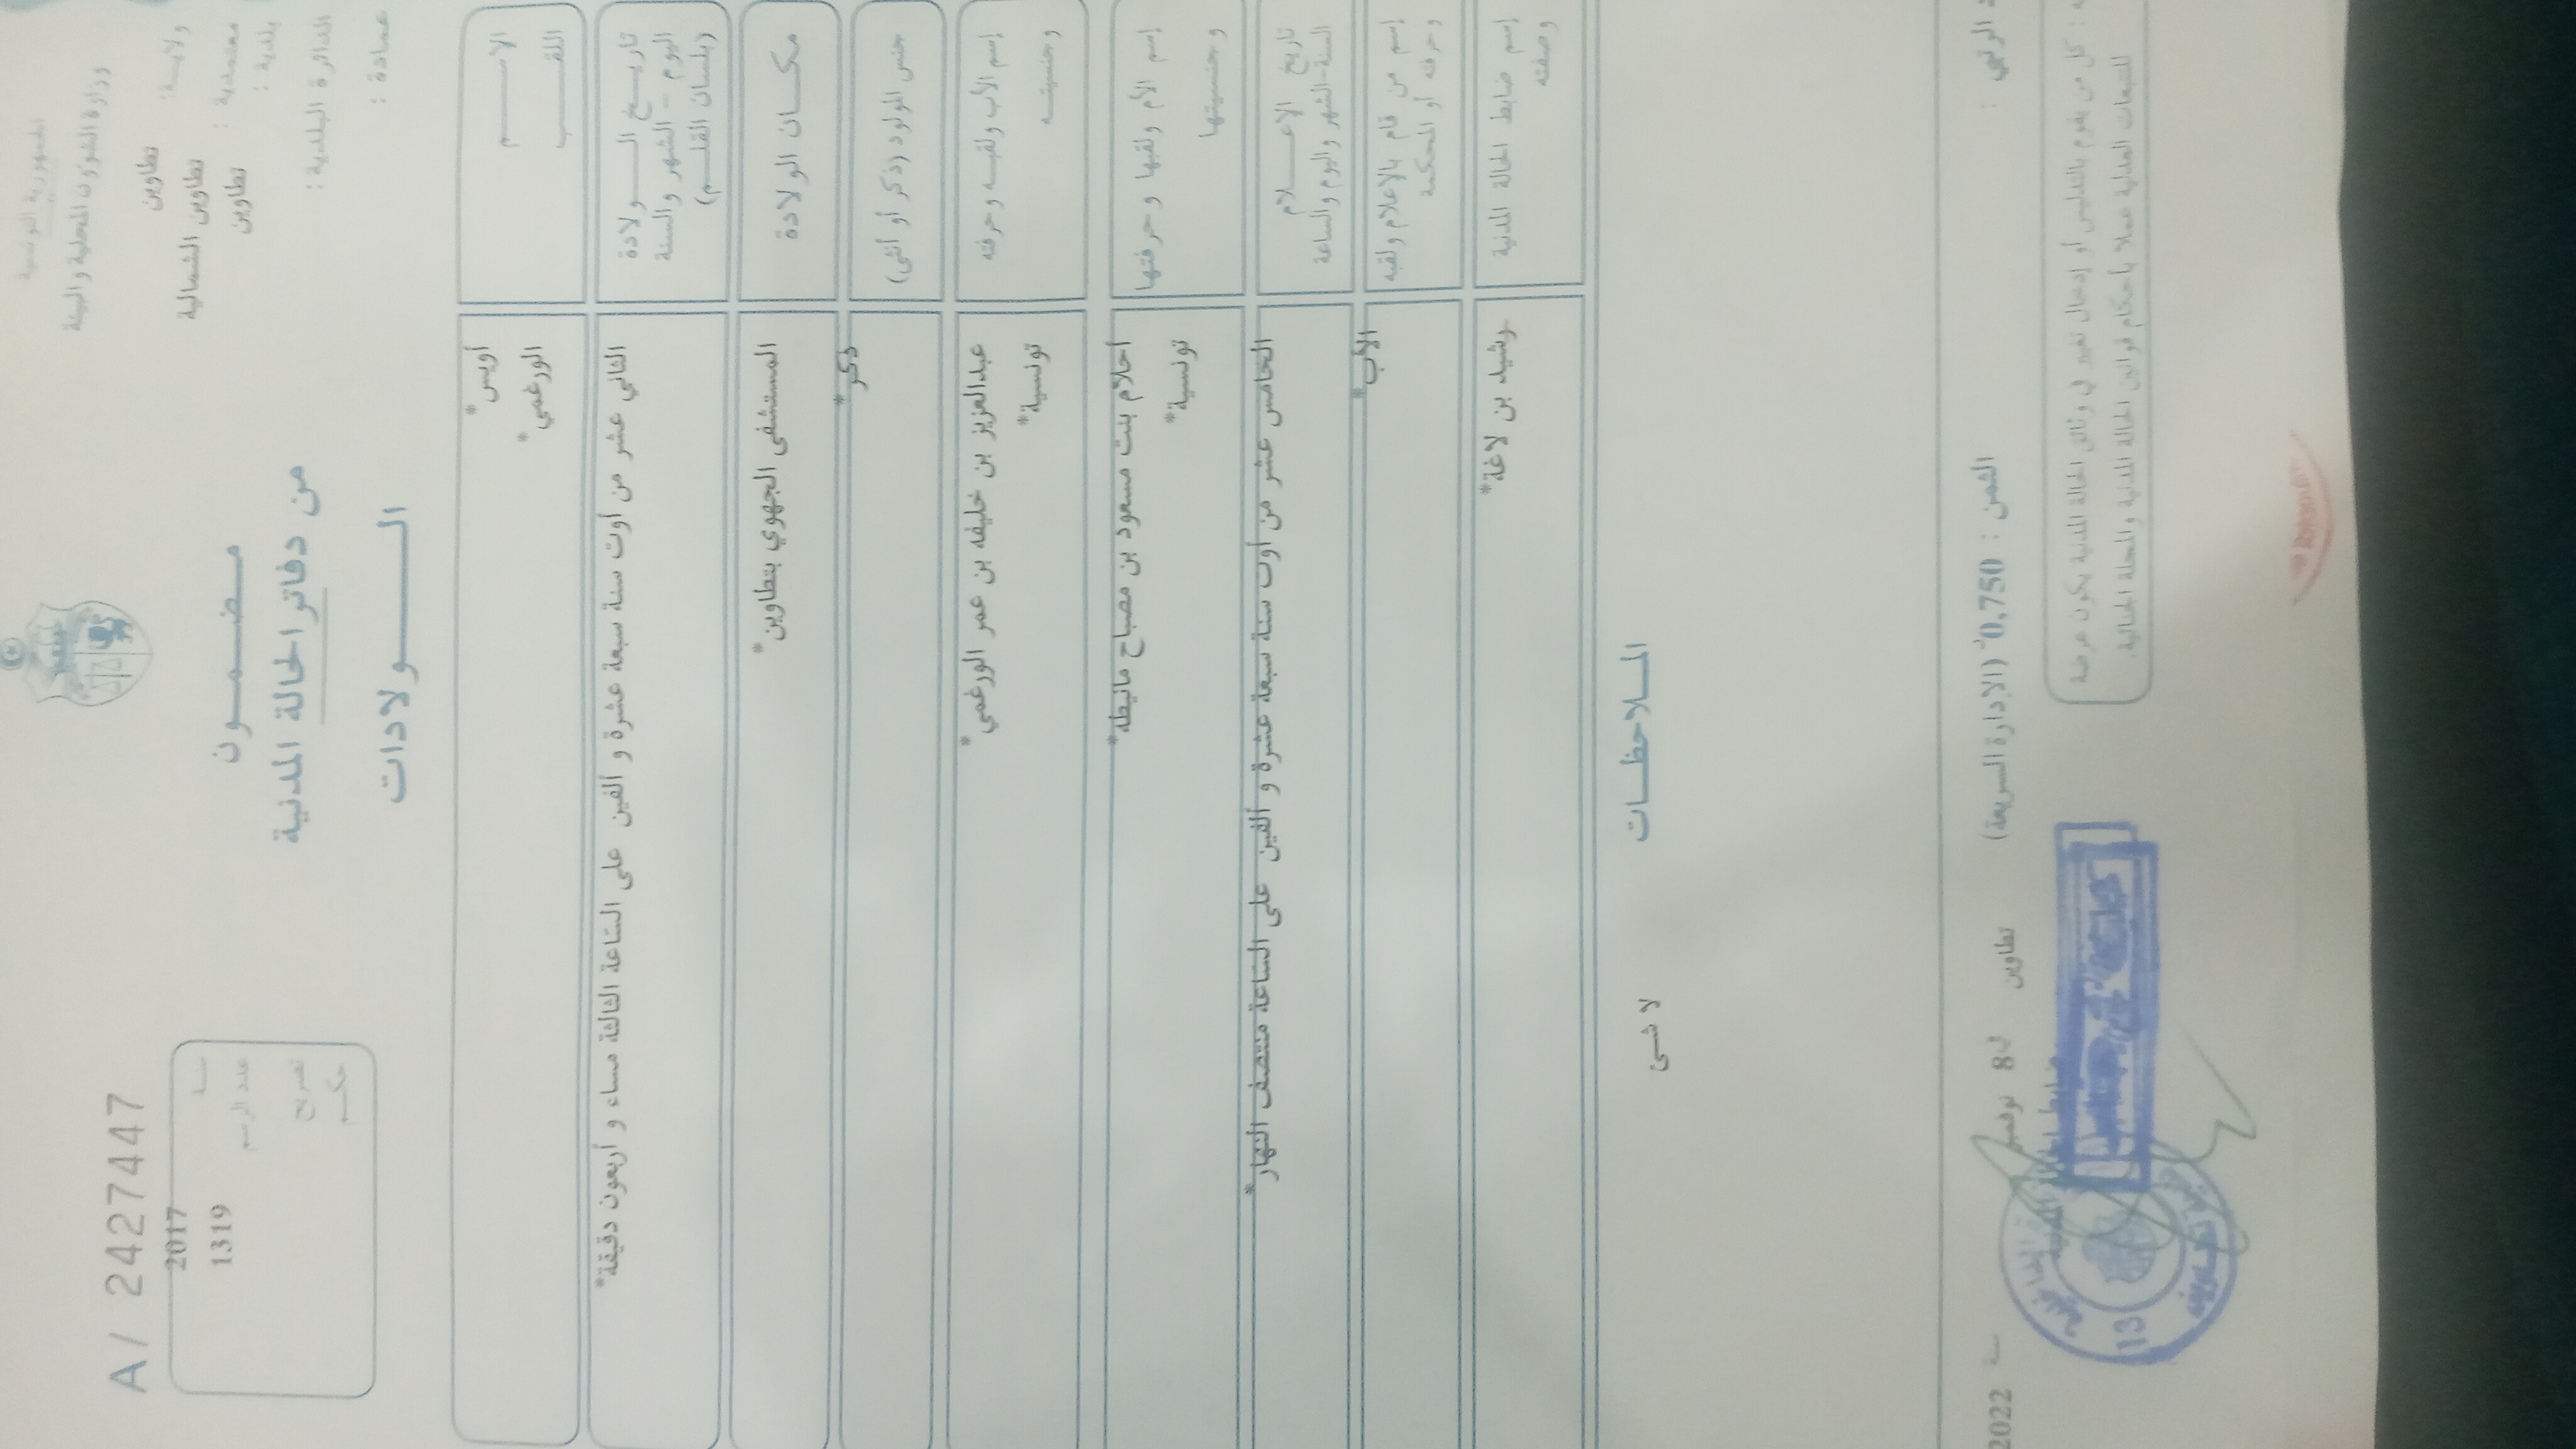 الجمهورية التونسية
وزارة الشؤون المحلية والبيئة
ولاية: تطاوين
معتمدية: تطاوين الشمالية
بلدية: تطاوين
الدائرة البلدية:
عمادة:
مضمون
من دفاتر الحالة المدنية
الولادات
A/ 2427447
سنة 2017
عدد الرسم 1319
تصريح
حكم
الاسم أويس*
اللقب الورغمي*
تاريخ الولادة
اليوم - الشهر والسنة
(بلسان القلم)
الثاني عشر من أوت سنة سبعة عشرة و ألفين على الساعة الثالثة مساء و أربعون دقيقة*
مكان الولادة المستشفى الجهوي بتطاوين*
جنس المولود (ذكر أو أنثى) ذكر*
إسم الأب ولقبه وحرفته عبدالعزيز بن خليفه بن عمر الورغمي*
وجنسيته تونسية*
إسم الأم ولقبها وحرفتها أحلام بنت مسعود بن مصباح مانيطه*
وجنسيتها تونسية*
تاريخ الاعلام
السنة-الشهر واليوم والساعة
الخامس عشر من أوت سنة سبعة عشرة و ألفين على الساعة منتصف النهار*
إسم من قام بالاعلام ولقبه
وحرفته أو المحكمة
الأب*
إسم ضابط الحالة المدنية
وصفته
رشيد بن لاغة*
الملاحظات
لا شىء
الثمن : 0,750 (الإدارة السريعة)
تطاوين في 8 نوفمبر سنة 2022
كل من يقوم بالتدليس أو إدخال تغيير في وثائق الحالة المدنية يكون عرضة
للتبعات العدلية عملا بأحكام قوانين الحالة المدنية والمجلة الجنائية.
ضابط الحالة المدنية
13